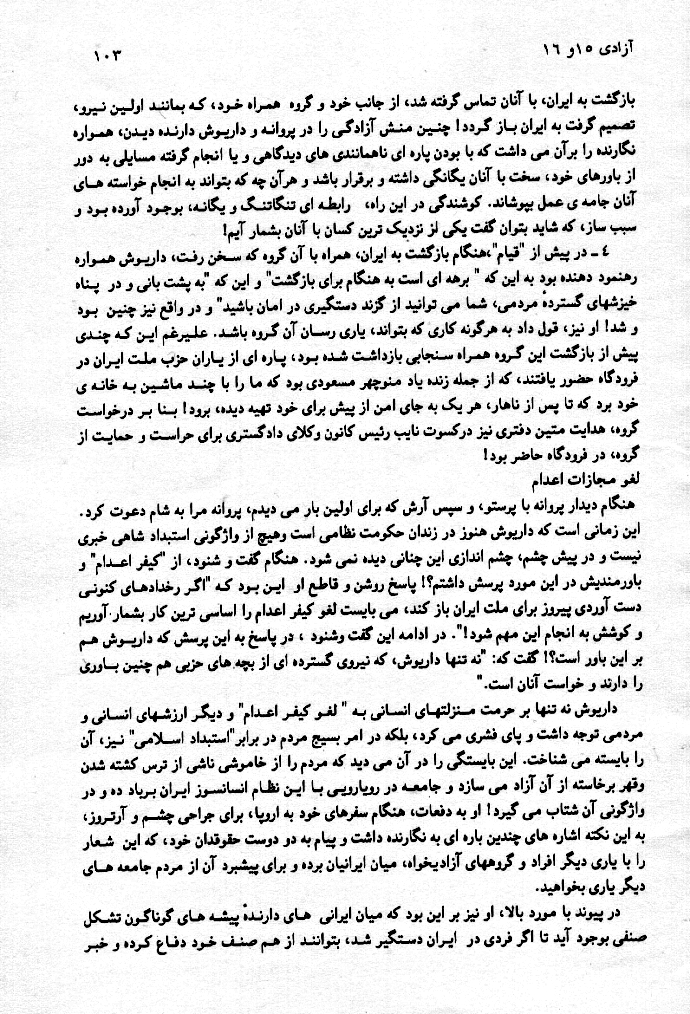 آزادی ۱۵و ۱۶
۱۰۳
بازگشت به ایران، با آنان تماس گرفته شد، از جانب خود و گروه همراه خود، که بمانند اولین نیرو،
تصمیم گرفت به ایران باز گردد! چنین منش آزادگی را در پروانه و داریوش دارنده دیدن، همواره
نگارنده را برآن می داشت که با بودن پاره ای ناهمانندی های دیدگاهی و یا انجام گرفته مسایلی به دور
از باورهای خود، سخت با آنان یگانگی داشته و برقرار باشد و هرآن چه که بتواند به انجام خواسته های
آنان جامه ی عمل بپوشاند. کوشندگی در این راه، رابطه ای تنگاتنگ و یگانه، بوجود آورده بود و
سبب ساز، که شاید بتوان گفت یکی از نزدیک ترین کسان با آنان بشمار آیم!
٤ـ در پیش از "قیام"،هنگام بازگشت به ایران، همراه با آن گروه که سخن رفت، داریوش همواره
رهنمود دهنده بود به این که " برهه ای است به هنگام برای بازگشت" و این که "به پشت بانی و در پناه
خیزشهای گستردهٔ مردمی، شما می توانید از گزند دستگیری در امان باشید" و در واقع نیز چنین بود
و شد! او نیز، قول داد به هرگونه کاری که بتواند، یاری رسان آن گروه باشد. علیرغم این که چندی
پیش از بازگشت این گروه همراه سنجابی بازداشت شده بود، پاره ای از یاران حزب ملت ایران در
فرودگاه حضور یافتند، که از جمله زنده یاد منوچهر مسعودی بود که ما را با چند ماشین به خانه ی
خود برد که تا پس از ناهار، هر یک به جای امن از پیش برای خود تهیه دیده، برود! بنا بر درخواست
گروه، هدایت متین دفتری نیز درکسوت نایب رئیس کانون وکلای دادگستری برای حراست و حمایت از
گروه، در فرودگاه حاضر بود!
لغو مجازات اعدام
هنگام دیدار پروانه با پرستو، و سپس آرش که برای اولین بار می دیدم، پروانه مرا به شام دعوت کرد.
این زمانی است که داریوش هنوز در زندان حکومت نظامی است وهیچ از واژگونی استبداد شاهی خبری
نیست و در پیش چشم، چشم اندازی این چنانی دیده نمی شود. هنگام گفت و شنود، از "کیفر اعدام" و
باورمندیش در این مورد پرسش داشتم؟! پاسخ روشن و قاطع او این بود که "اگر رخدادهای کنونی
دست آوردی پیروز برای ملت ایران باز کند، می بایست لغو کیفر اعدام را اساسی ترین کار بشمار آوریم
و کوشش به انجام این مهم شود!". در ادامه این گفت وشنود ، در پاسخ به این پرسش که داریوش هم
بر این باور است؟! گفت که: "نه تنها داریوش، که نیروی گسترده ای از بچه های حزبی هم چنین باوری
را دارند و خواست آنان است."
داریوش نه تنها بر حرمت منزلتهای انسانی به " لغو کیفر اعدام" و دیگر ارزشهای انسانی و
مردمی توجه داشت و پای فشری می کرد، بلکه در امر بسیج مردم در برابر"استبداد اسلامی" نیز، آن
را بایسته می شناخت. این بایستگی را در آن می دید که مردم را از خاموشی ناشی از ترس کشته شدن
وقهر برخاسته از آن آزاد می سازد و جامعه در رویارویی با این نظام انسانسوز ایران برباد ده و در
واژگونی آن شتاب می گیرد! او به دفعات، هنگام سفرهای خود به اروپا، برای جراحی چشم و آرتروز،
به این نکته اشاره های چندین باره ای به نگارنده داشت و پیام به دو دوست حقوقدان خود، که این شعار
را با یاری دیگر افراد و گروههای آزادیخواه، میان ایرانیان برده و برای پیشبرد آن از مردم جامعه های
دیگر یاری بخواهید.
در پیوند با مورد بالا، او نیز بر این بود که میان ایرانی های دارندهٔ پیشه های گوناگون تشکل
صنفی بوجود آید تا اگر فردی در ایران دستگیر شد، بتوانند از هم صنف خود دفاع کرده و خبر